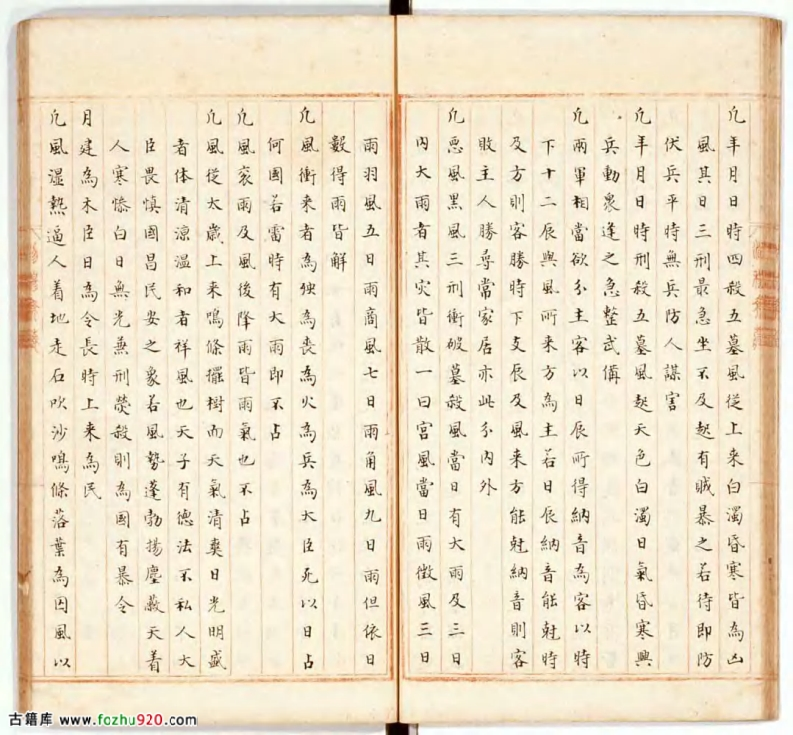 凢年月日時四殺五墓風從上来白濁昏寒皆為凶
風其日三刑最急坐不及起有賊暴之若待即防
伏兵平時無兵防人謀害
凢年月日時刑殺五墓風起天色白濁日氣昏寒興
兵動衆逢之急整武備
凢兩軍相當欲分主客以日辰所得納音為客以時
下十二辰與風所来方為主若日辰納音能尅時
及方則客勝時下支辰及風来方能尅納音則客
敗主人勝尋常家居亦此分内外
凢惡風黑風三刑衝破墓殺風當日有大雨及三日
内大雨者其灾皆散一曰宮風當日雨徴風三日
雨羽風五日雨商風七日雨角風九日雨但依日
數得雨皆解
凢風衝来者為殃為喪為火為兵為大臣死以日占
何國若雷時有大雨即不占
凢風衮雨及風後降雨皆雨氣也不占
凢風從太歲上来鳴條擺樹而天氣清爽日光明盛
者体清涼温和者祥風也天子有德法不私人大
臣畏慎國昌民安之象若風勢蓬勃揚塵蔽天着
人寒慘白日無光兼刑㷀殺則為國有暴令
月建為木臣日為令長時上来為民
凢風濕熱逼人着地走石吹沙鳴條落葉為因風以
古籍库 www.fozhu920.com